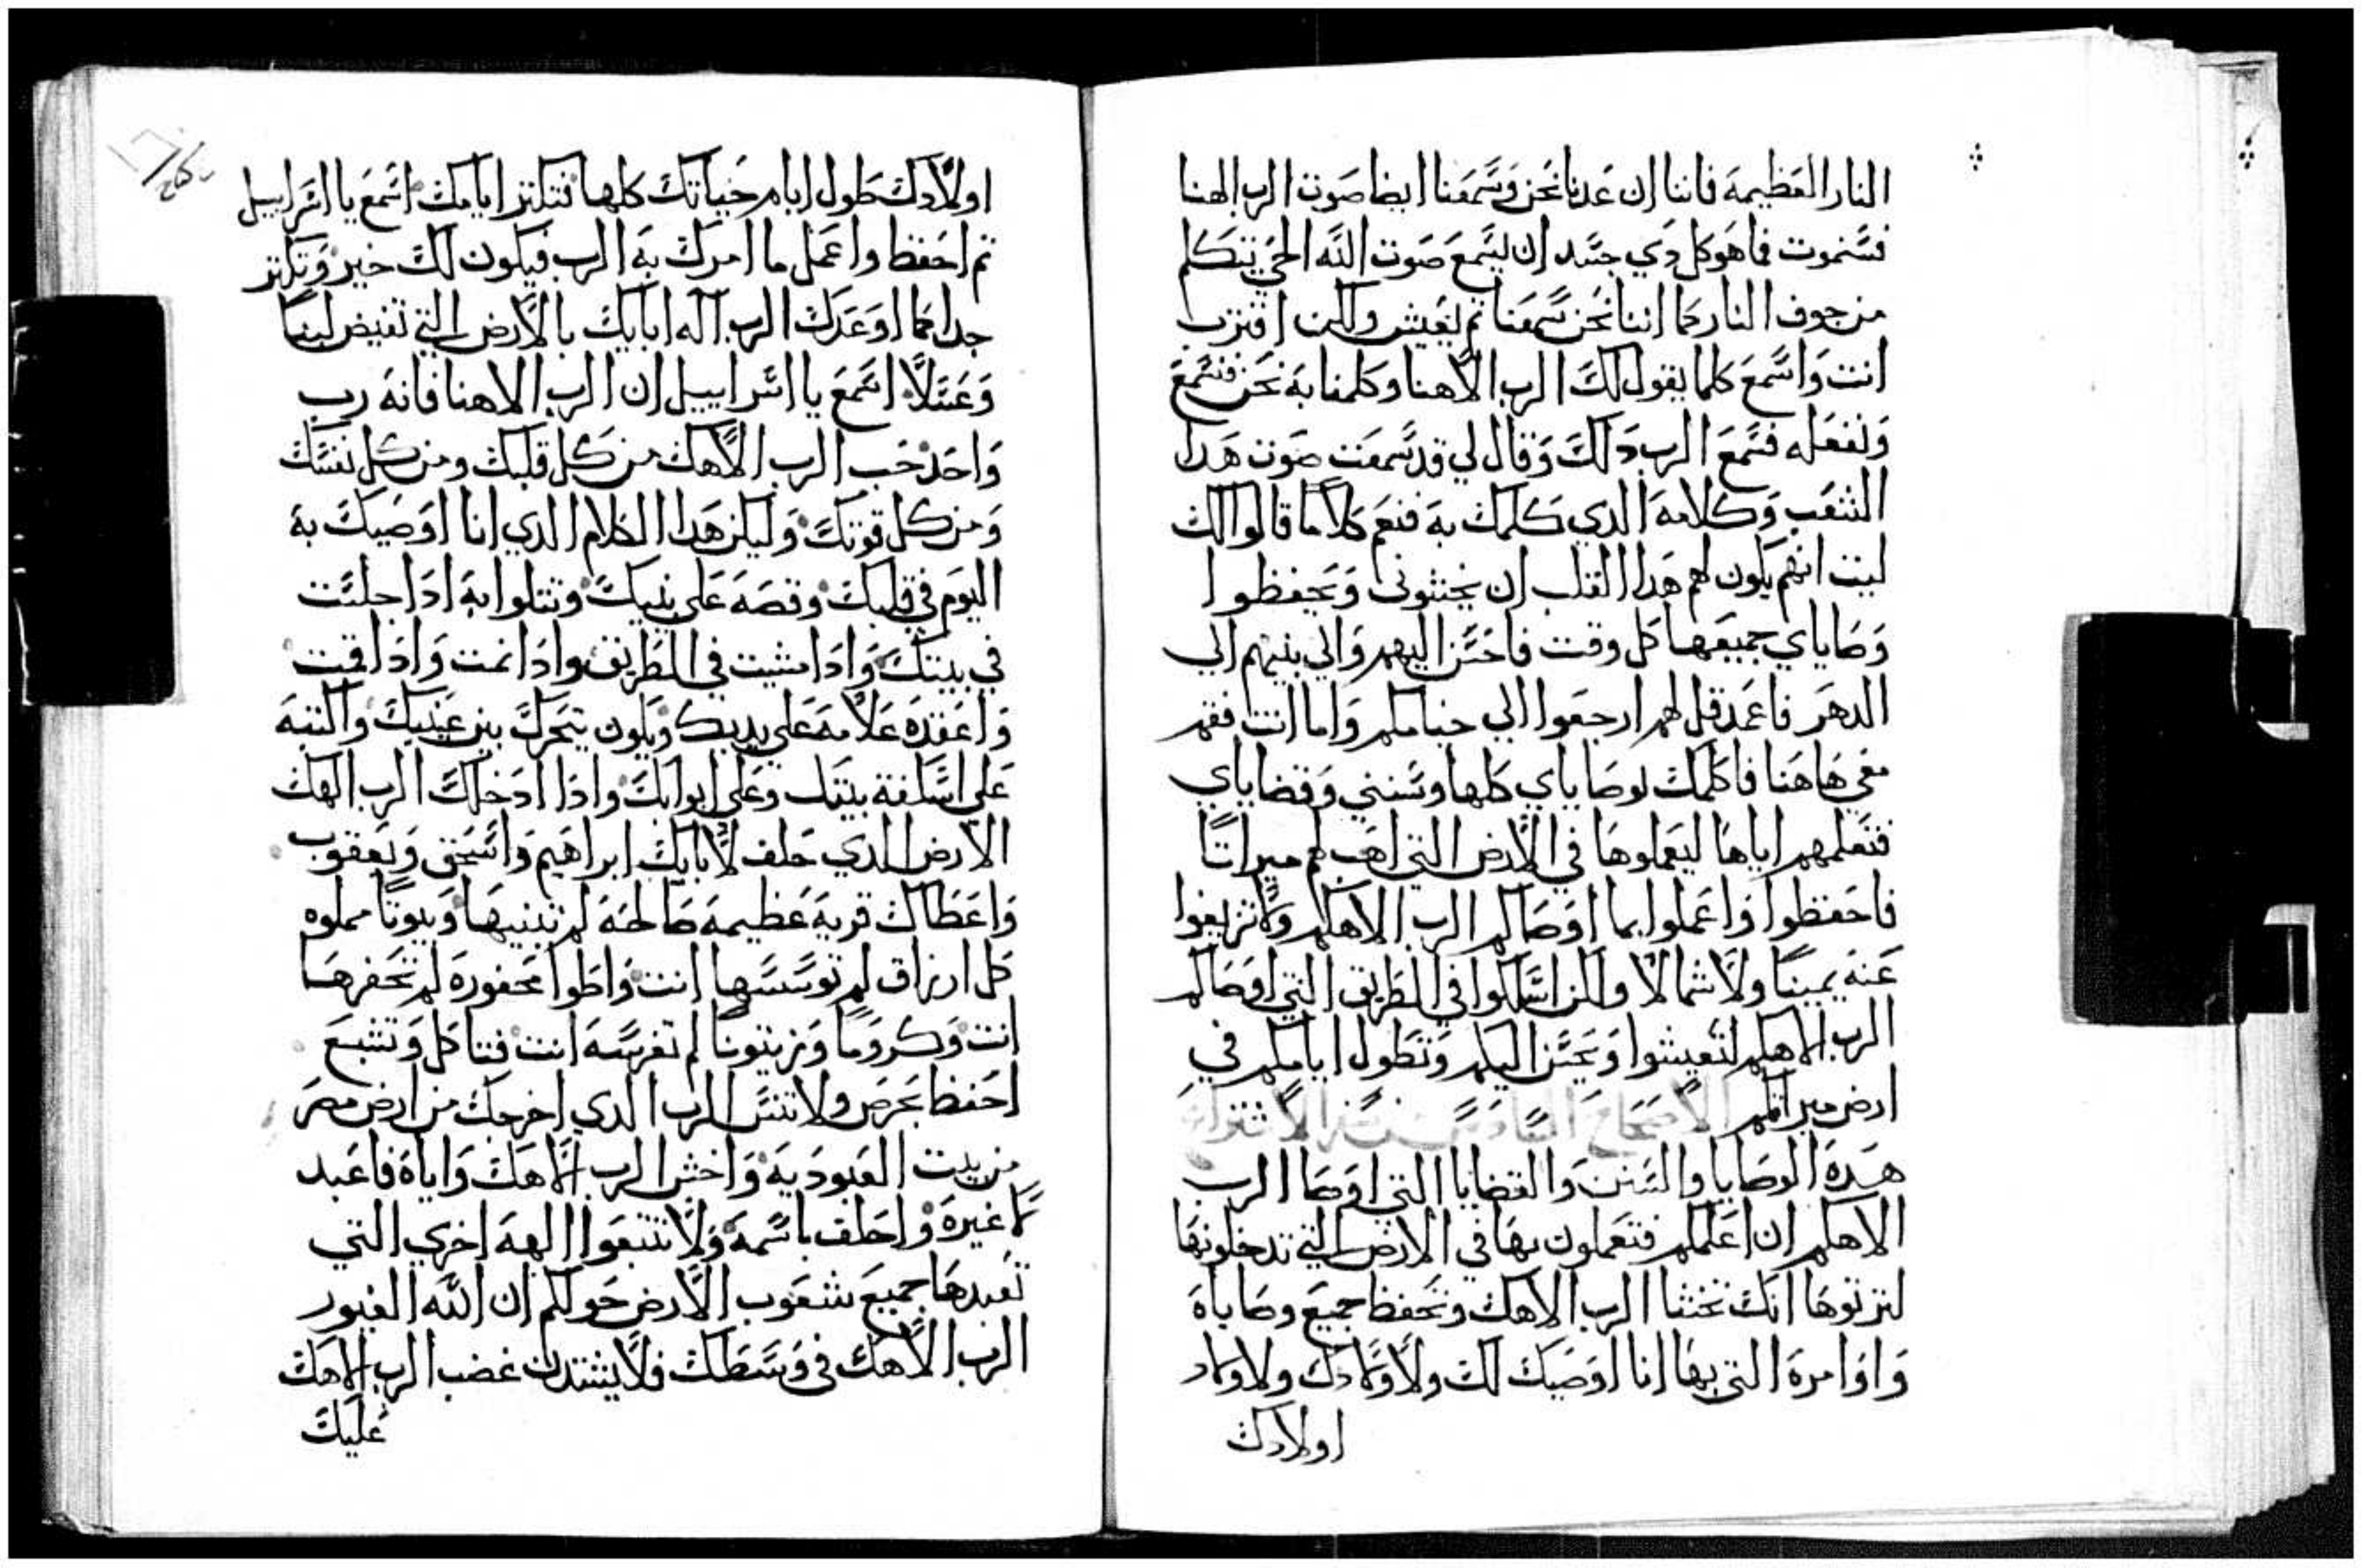 النار العظيمه فاننا ان عدنا نحن وسمعنا ايضا صوت الرب الهنا
فسنموت فما هو كل دي جسد ان ليسمع صوت الله الحي يتكلم
من جوف النار كما اننا نحن سمعنا ثم ليعيش ولكن اقترب
انت واسمع كلما يقول لك الرب الاهنا وكلمنا به نحن فنسمع
ونفعله فسمع الرب دلك وقال لي قد سمعت صوت هدا
الشعب وكلامه الدي كلمك به فنعم كلاما قالوا لك
ليت انهم يكون لهم هدا القلب ان يخشوني ويحفظوا
وصاياي جميعها كل وقت فاحسن اليهم والي بنيهم الي
الدهر فاعمد قل لهم ارجعوا الي خيامكم واما انت فقم
معي هاهنا فاكلمك بوصاياي كلها وسنني وقضاياي
فتعلمهم اياها ليعملوها في الارض التي اهب لهم ميراتا
فاحفظوا واعملوا بما اوصاكم الرب الاهكم ولا تزيغوا
عنه يمينا ولا شمالا ولكن اسلكوا في الطريق التي اوصاكم
الرب الاهكم لتعيشوا ويحسن اليكم وتطول ايامكم في
ارض ميراتكم الاصحاح السادس من الاشتراع
هده الوصايا والسنن والقضايا التي اوصا الرب
الاهكم ان اعلمكم فتعملون بها في الارض التي تدخلونها
لترتوها انك تخشا الرب الاهك وتحفظ جميع وصاياه
واوامره التي بها انا اوصيك لك ولاولادك ولاولاد
اولادك
اولادك طول ايام حياتك كلها فتكتر ايامك اسمع يا اسراييل
تم احفظ واعمل ما امرك به الرب فيكون لك خير وتكتر
جدا كما اوعدك الرب اله ابايك بالارض التي تفيض لبنا
وعسلا اسمع يا اسراييل ان الرب الاهنا فانه رب
واحد حب الرب الاهك من كل قلبك ومن كل نفسك
ومن كل قوتك وليكن هدا الكلام الدي انا اوصيك به
اليوم في قلبك وقصه علي بنيك وتتلوا به ادا جلست
في بيتك وادا مشيت في الطريق وادا نمت وادا قمت
واعقده علامه علي يديك ويكون يتحرك بين عينيك واكتبه
علي اسكفة بيتك وعلي ابوابك وادا ادخلك الرب الهك
الارض الدي حلف لابايك ابراهيم واسحق ويعقوب
واعطاك قريه عظيمه صالحه لم تبنيها وبيوتا مملوه
كل ارزاق لم توسسها انت واطوا محفوره لم تحفرها
انت وكروما وزيتونا لم تغرسه انت فتاكل وتشبع
احفظ بحرص ولا تنس الرب الدي اخرجك من ارض مصر
من بيت العبوديه واخش الرب الاهك واياه فاعبد
لا غيره واحلف باسمه ولا تتبعوا الهه اخري التي
تعبدها جميع شعوب الارض حولكم ان الله الغيور
الرب الاهك في وسطك فلا يشتدن غضب الرب الاهك
عليك